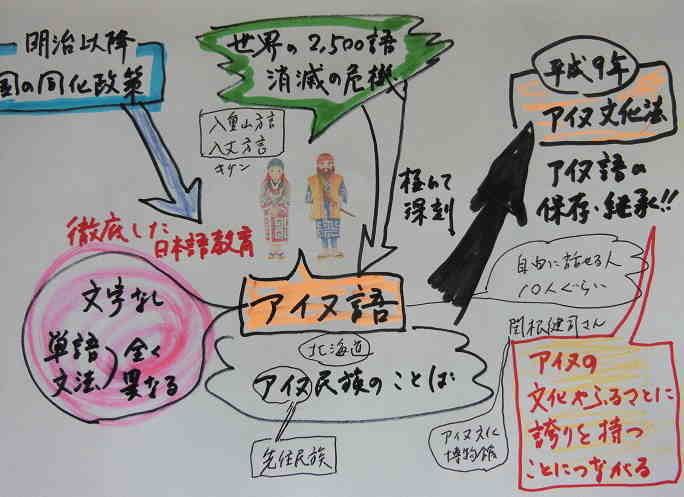 明治以降
国の同化政策
世界の2,500語
消滅の危機
八重山方言
八丈方言
キケン
極めて
深刻
平成9年
アイヌ文化法
アイヌ語の
保存・継承!!
徹底した
日本語教育
アイヌ語
文字なし
単語
文法
全く
異なる
北海道
アイヌ民族のことば
先住民族
自由に話せる人
10人ぐらい
関根健司さん
アイヌ文化
博物館
アイヌの
文化やふるさとに
誇りを持つ
ことにつながる